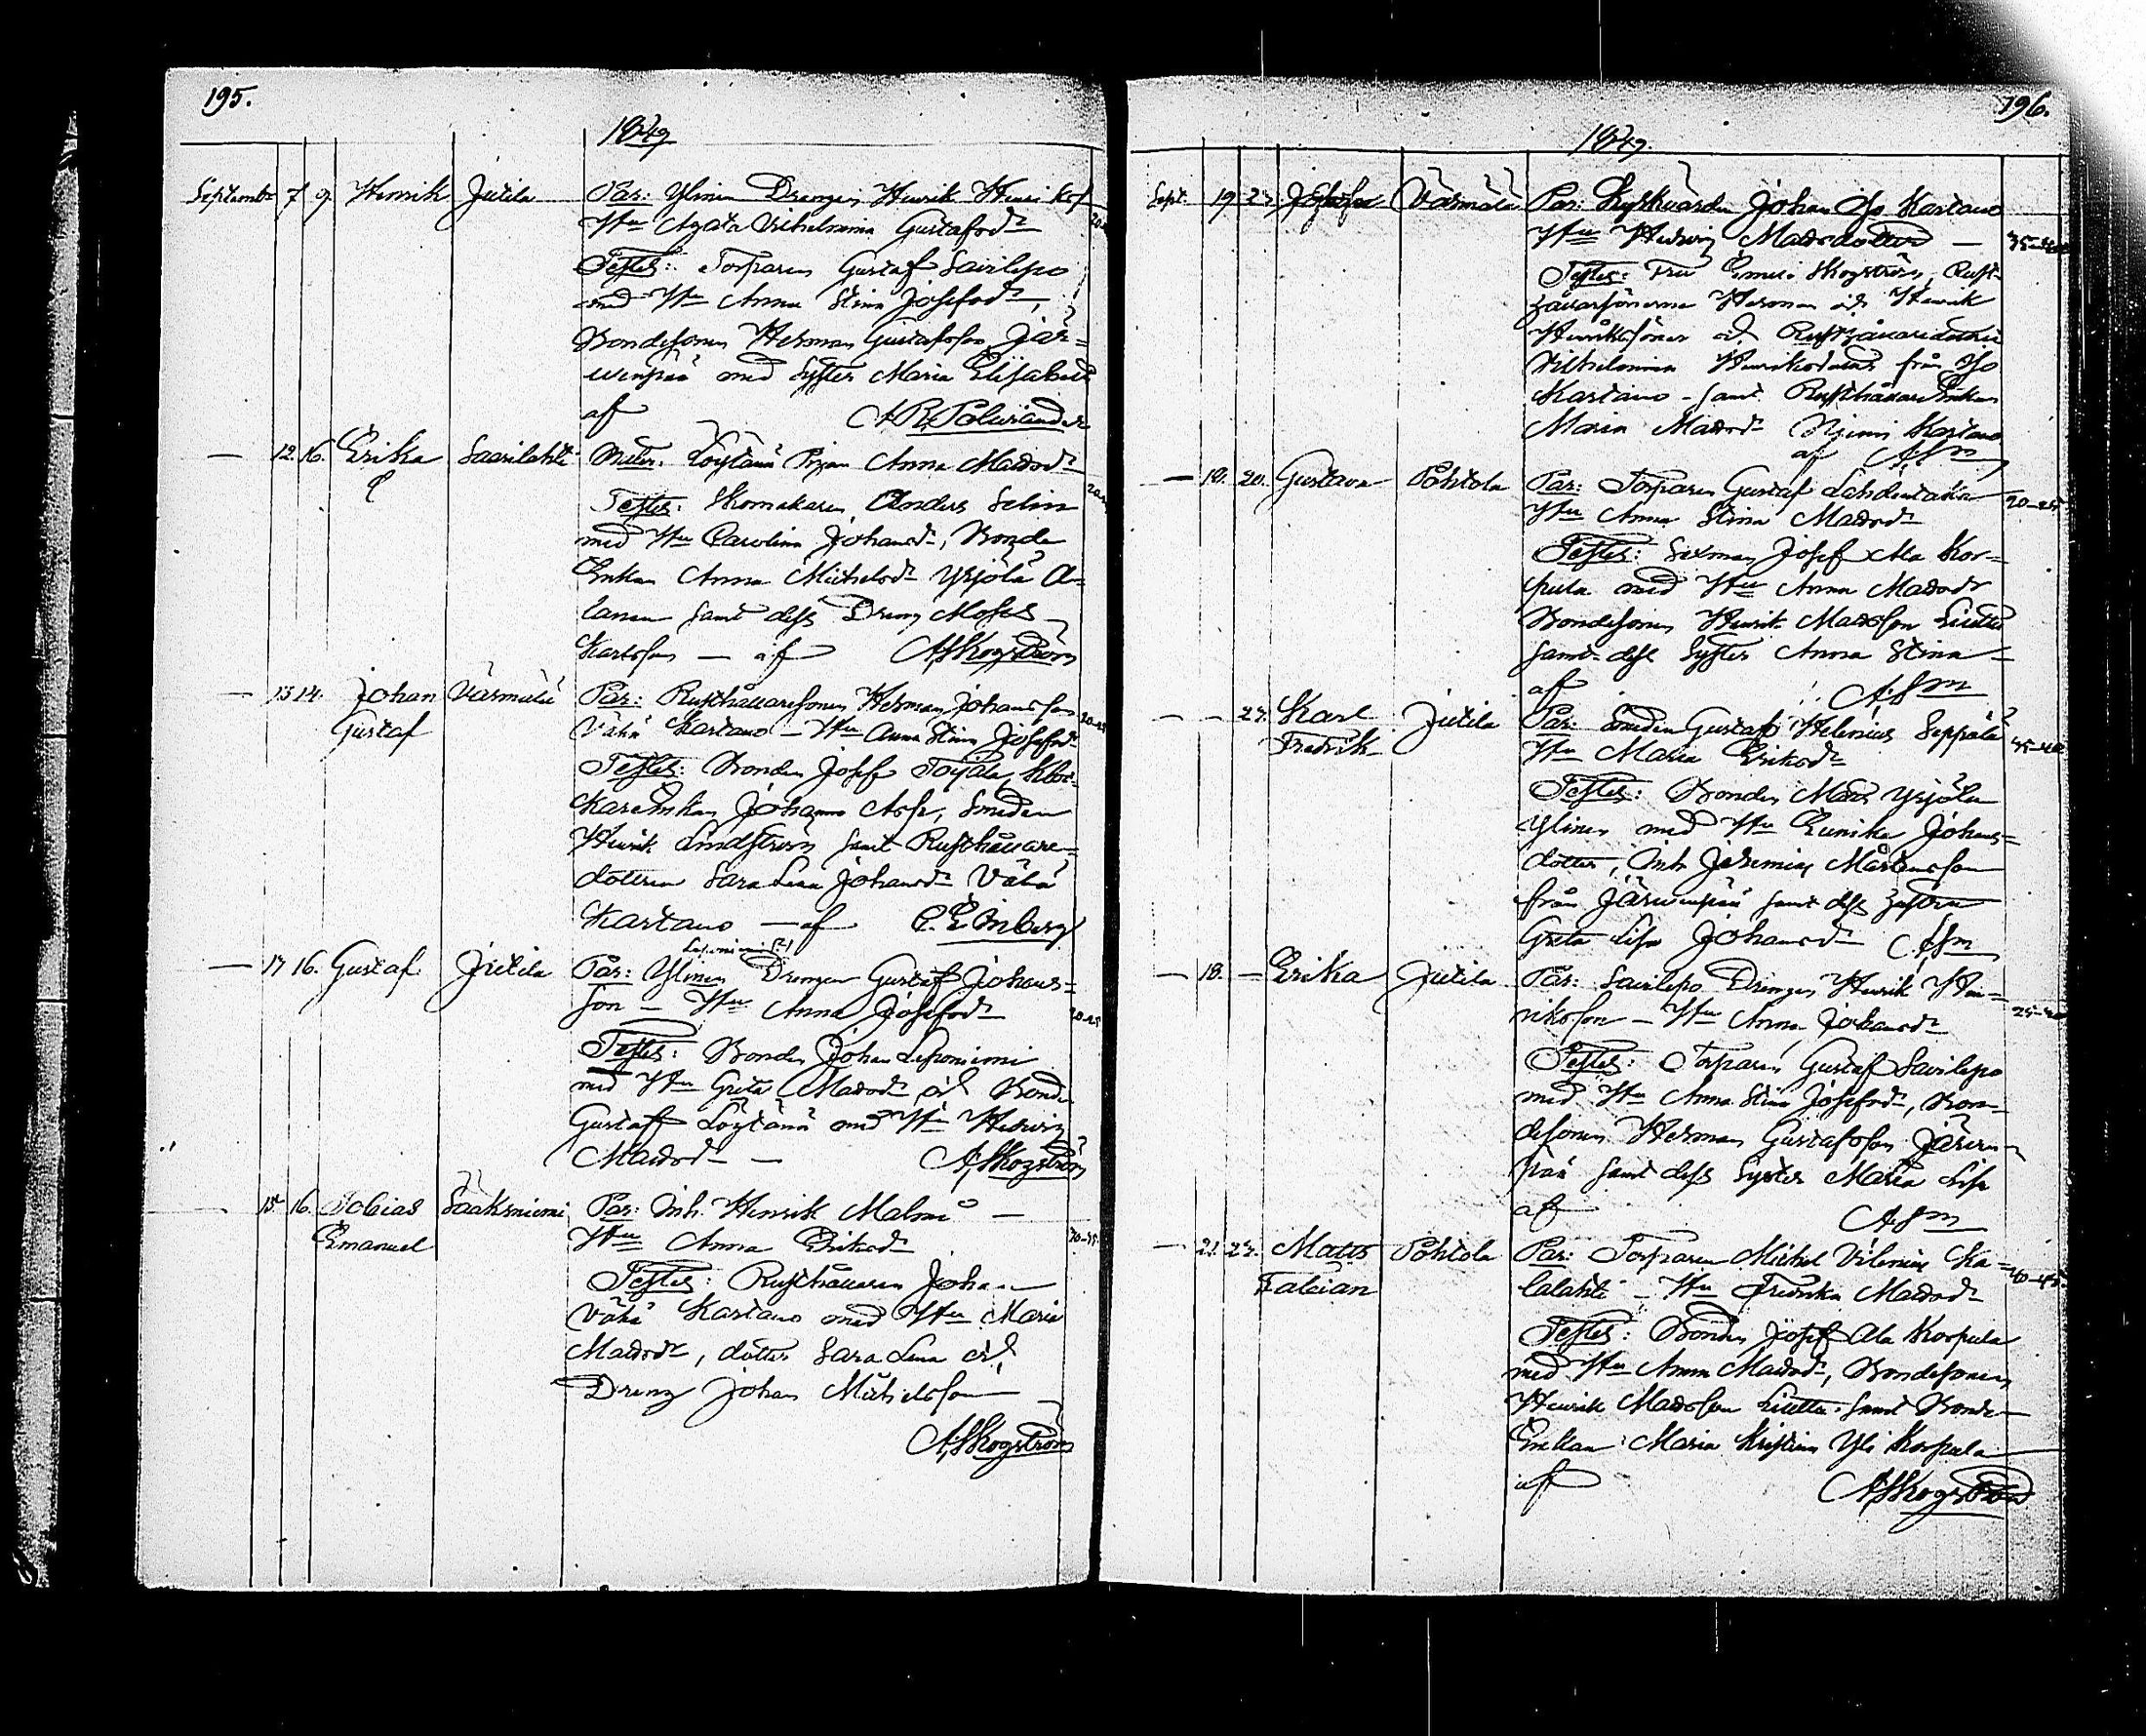 195.
1849
Septembr 7 9. Henrik Jutila Par: Ylinen Drengen Henrik Henriksf
Hu Agata Vilhelmina Gustafsdr
Testes: Torparen Gustaf Savilepo
med Hu Anna Stina Josefsdr,
Bondesonen Herman Gustafsson Jär=
wenpää med Syster Maria Elisabeth
af A R Polviander
— 12. 16. Erika Saarilahti Moder: Löytänä Pigan Anna Matsdr
Testes: Skomakaren Anders Selin
med Hu Carolina Johansdr, Bonde
Enkan Anna Michelsdr Yrjölä A=
lanen samt dess Dreng Moses
Karlsson — af A Skogström
— 13 14. Johan Gustaf Värmälä Par: Rusthållaresonen Herman Johansson 20-25
Vähä Kartano — Hu Anna Stina Josefsdr
Testes: Bonden Josef Toijala, Kloc=
kareEnkan Johanna Asp, Smeden
Henrik Lindström samt Rusthållare=
dottren Sara Lena Johansdr Vähä
Kartano — af C. E. Inberg
Leponiemi (?)
— 17 16. Gustaf. Jutila Par: Ylinen Drengen Gustaf Johans=
son — Hu Anna Josefsdr 20-25
Testes: Bonden Johan Leponiemi
med Hu Greta Matsdr och Bonden
Gustaf Löytänä med Hu Hedvig
Matsdr — A Skogström
15. 16. Tobias Emanuel Sääksniemi Par: Inh. Henrik Malmi —
Hu Anna Eriksdr
Testes: Rusthållaren Johan
Vähä Kartano med Hu Maria
Matsdr, dotter Sara Lena och
Dreng Johan Michelsson
A Skogström
196.
1849.
Sept. 19 23 Värmälä Par: Kyrkvärden Johan Iso Kartano
Hu Hedvig Matsdotter — 35-40
Testes: Fru Emeli Skogström, Rust=
hållarsönerna Herman och Henrik
Henrikssöner och Rusthållaredotter
Vilhelmina Henriksdotter från Iso
Kartano — samt Rusthållare Enkan
Maria Matsdr Kartano
af ASm
— 18. 20. Gustava Pohtola Par: Torparen Gustaf Lehdentaka 20-25
Hu Anna Stina Matsdr
Testes: Sexman Josef Ala Kor=
pula med Hu Anna Matsdr
Bondesonen Henrik Matsson Liuttu
samt dess Syster Anna Stina —
af ASm
— — 23. Karl Fredrik Jutila Par: Smeden Gustaf Helenius Seppälä
Hu Maria Eriksdr
Testes: Bonden Mats Yrjölä
Ylinen med Hu Eunika Johans=
dotter, Inh. Jeremias Mårtensson
från Järwenpää samt dess hustru
Greta Lisa Johansdr ASm
— 18. — Erika Jutila Par: Savilepo Drengen Henrik Hen=
riksson — Hu Anna Johansdr
Testes: Torparen Gustaf Savilepo
med Hu Anna Stina Josefsdr, Bon=
desonen Herman Gustafsson Järwen=
pää samt dess Syster Maria Lisa
af ASm
— 21. 23. Matts Fabian Pohtola Par: Torparen Michel Vilenius Ka= 40-45.
lalahti — Hu Fredrika Matsdr
Testes: Bonden Josef Ala Korpula
med Hu Anna Matsdr, Bondesonen
Henrik Matsson Liuttu samt Bonde
Enkan Maria Kristina Yli Korpula
af A Skogström